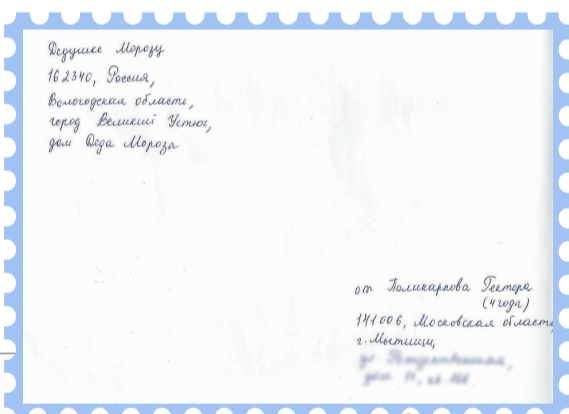 Дедушке Морозу
162340, Россия,
Вологодская область,
город Великий Устюг,
дом Деда Мороза
от Поликарпова Гектора
(4 года)
141006, Московская область,
г. Мытищи,